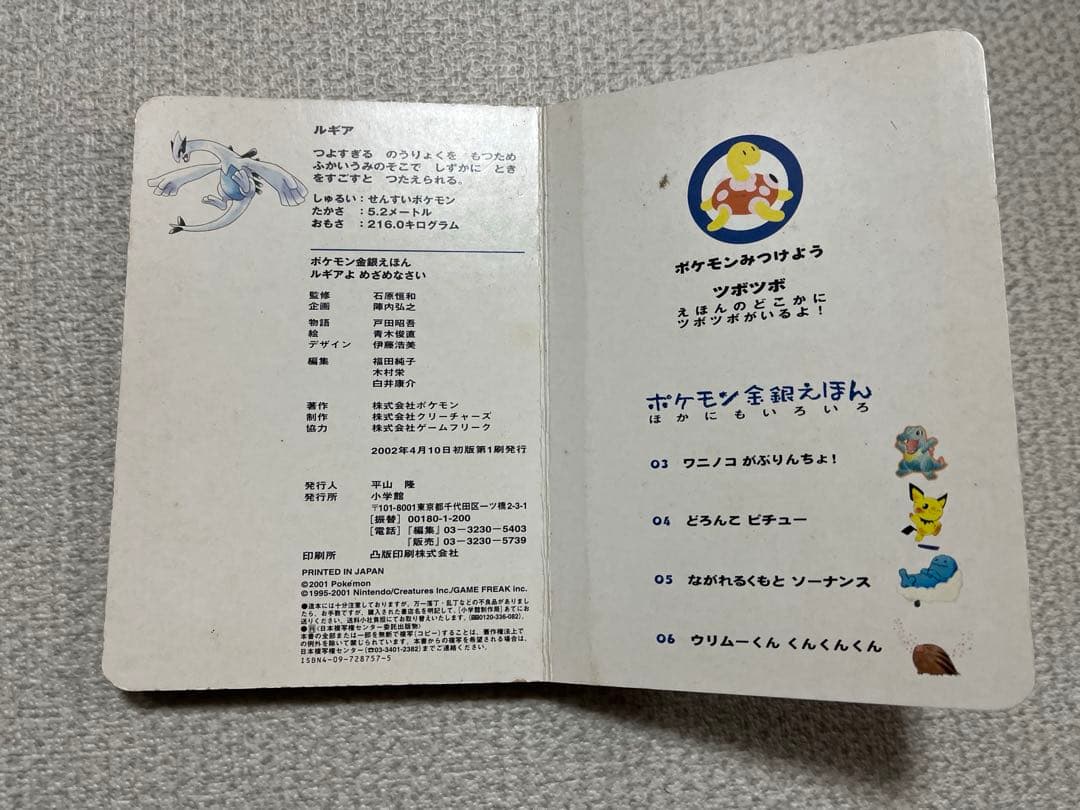 ルギア
つよすぎる のうりょくを もつため
ふかいうみのそこで しずかに とき
をすごすと つたえられる。
しゅるい：せんすいポケモン
たかさ ：5.2メートル
おもさ ：216.0キログラム
ポケモン金銀えほん
ルギアよ めざめなさい
監修 石原恒和
企画 陣内弘之
物語 戸田昭吾
絵 青木俊直
デザイン 伊藤浩美
編集 福田純子
木村栄
白井康介
著作 株式会社ポケモン
制作 株式会社クリーチャーズ
協力 株式会社ゲームフリーク
2002年4月10日初版第1刷発行
発行人 平山 隆
発行所 小学館
〒101-8001東京都千代田区一ツ橋2-3-1
[振替] 00180-1-200
[電話]『編集』03-3230-5403
『販売』03-3230-5739
印刷所 凸版印刷株式会社
PRINTED IN JAPAN
©2001 Pokémon
©1995-2001 Nintendo/Creatures Inc./GAME FREAK inc.
●造本には十分注意しておりますが、万一落丁・乱丁などの不良品がありまし
たら、お手数ですが、購入された書店名を明記して、[小学館制作局]あてにお
送りください。送料小社負担にてお取り替えいたします。(0120-336-082)
●(日本複写権センター委託出版物)
本書の全部または一部を無断で複写(コピー)することは、著作権法上で
の例外を除いて禁じられています。本書からの複写を希望される場合は、
日本複写権センター(☎03-3401-2382)までご連絡ください。
ISBN4-09-728757-5
ポケモンみつけよう
ツボツボ
えほんのどこかに
ツボツボがいるよ！
ポケモン金銀えほん
ほかにもいろいろ
03 ワニノコ がぶりんちょ！
04 どろんこ ピチュー
05 ながれるくもと ソーナンス
06 ウリムーくん くんくんくん